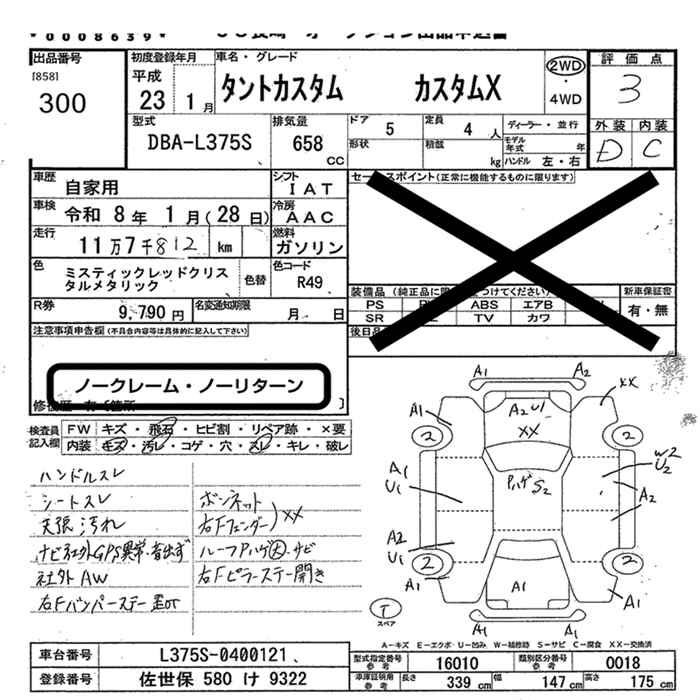 *0008639*
出品番号 初度登録年月 車名・グレード 評価点
[858] 平成 2WD
300 23 1月 タントカスタム カスタムX ・ 3
4WD
型式 排気量 ドア 5 定員 4人 ディーラー・並行 外装 内装
DBA-L375S 658 cc 形状 積載 kg モデル年式 年 D C
ハンドル 左・右
車歴 自家用 シフト IAT セールスポイント(正常に機能するものに限ります)
車検 令和 8年 1月(28日) 冷房 AAC
走行 11万7千812 km 燃料 ガソリン
色 ミスティックレッドクリスタルメタリック 色替 色コード R49
装備品 新車保証書
PS ABS エアB 有・無
SR TV カワ
R券 9,790円 名変通知期限 月 日 後日品
注意事項申告欄(不具合内容等は具体的に記入して下さい)
ノークレーム・ノーリターン
検査員記入欄 FW キズ・飛石・ヒビ割・リペア跡・×要
内装 キズ・汚レ・コゲ・穴・スレ・キレ・破レ
ハンドルスレ
シートスレ
天張汚れ
ナビ社外GPS異常・音出ず
社外AW
右Fバンパーステー歪び
ボンネット
右Fフェンダー)XX
ルーフアハゲ大・サビ
右Fピラーステー開き
A1 A2
A1 A2 U1 XX
XX
2 2
A1 U1 アハゲS2 W2 U2
A2
A2 U1
2 2
A1 A1 A1
T スペア A1 A1
A-キズ E-エクボ U-凹み W-補修跡 S-サビ C-腐食 XX-交換済
車台番号 L375S-0400121 型式指定番号 参考 16010 類別区分番号 参考 0018
登録番号 佐世保 580 け 9322 車庫証明用 参考 長さ 339cm 幅 147cm 高さ 175cm